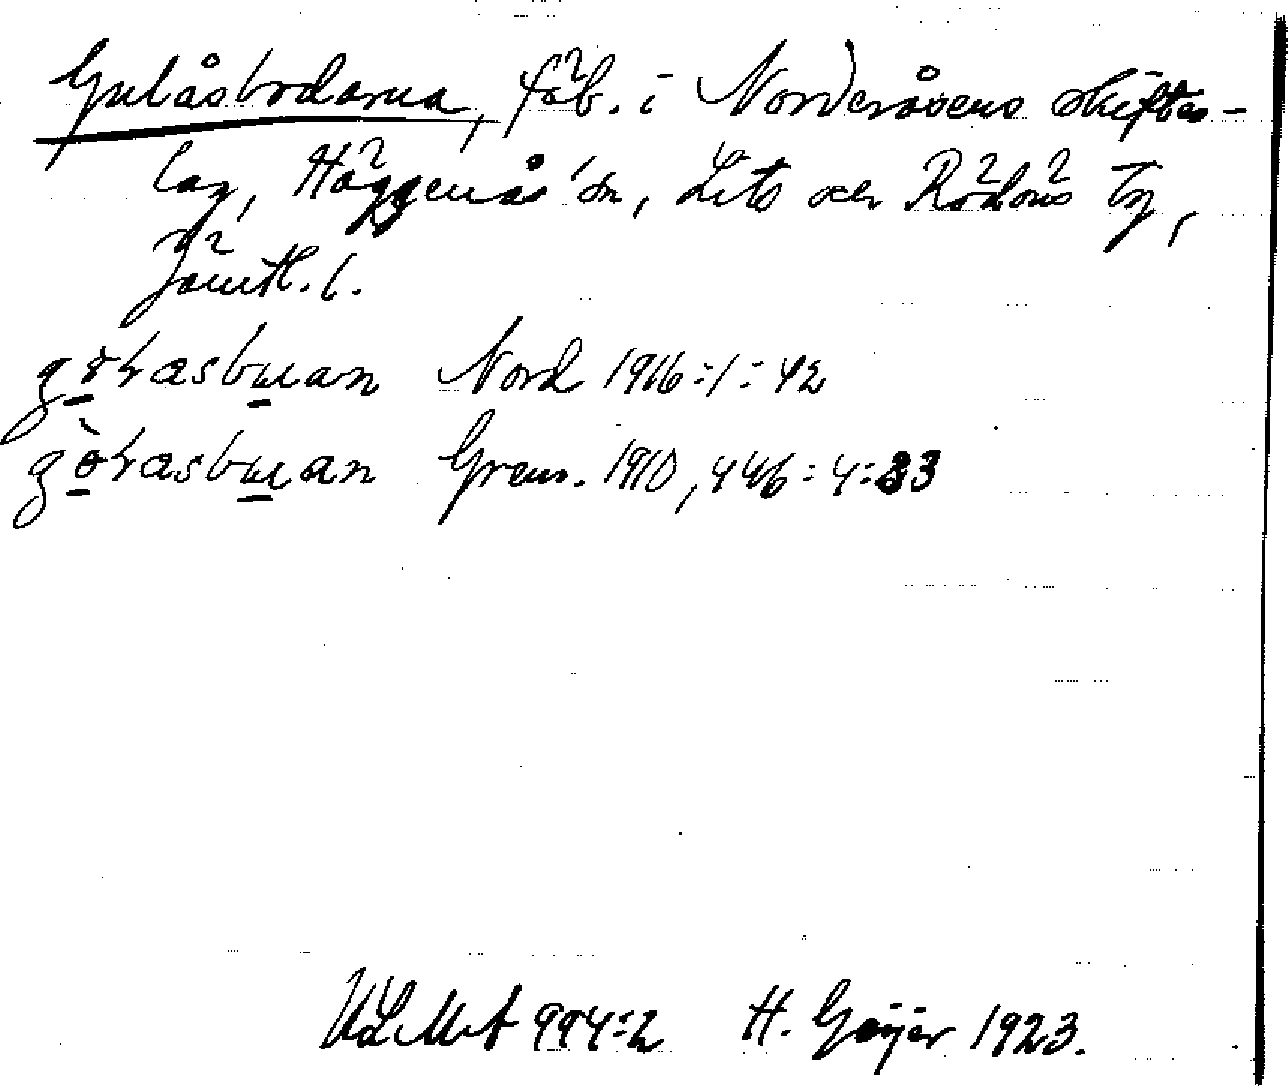 Gulåsbodarna, fäb. i Norderåsens skiftes-
lag, Häggenås sn, Lits och Rödöns tg,
Jämtl. l.
gòɫasbuan Nord 1916:1:42
gòɫasbuan Gren. 1910, 446:4:33
ULMA 994:2 H. Geijer 1923.